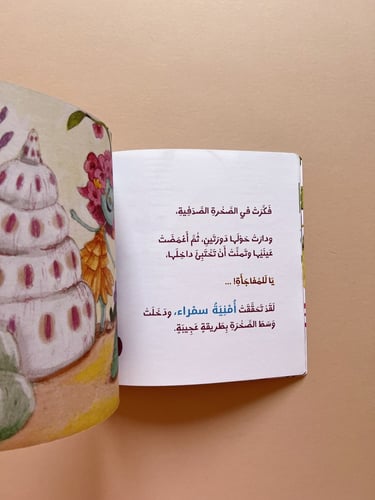 فَكَّرَتْ في الصَّخْرَةِ الصَّدَفِيَّةِ،
ودارَتْ حَوْلَها دَوْرَتَيْنِ، ثُمَّ أَغْمَضَتْ
عَيْنَيْها وتَمَنَّتْ أَنْ تَخْتَبِئَ داخِلَها.
يَا لَلمُفاجَأَةِ! ...
لَقَدْ تَحَقَّقَتْ أُمْنِيَةُ سمْراء، ودَخَلَتْ
وَسَطَ الصَّخْرَةِ بِطَريقَةٍ عَجيبَةٍ.